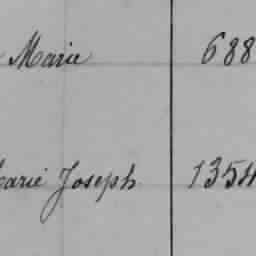 Marie 688
Marie Joseph 1354